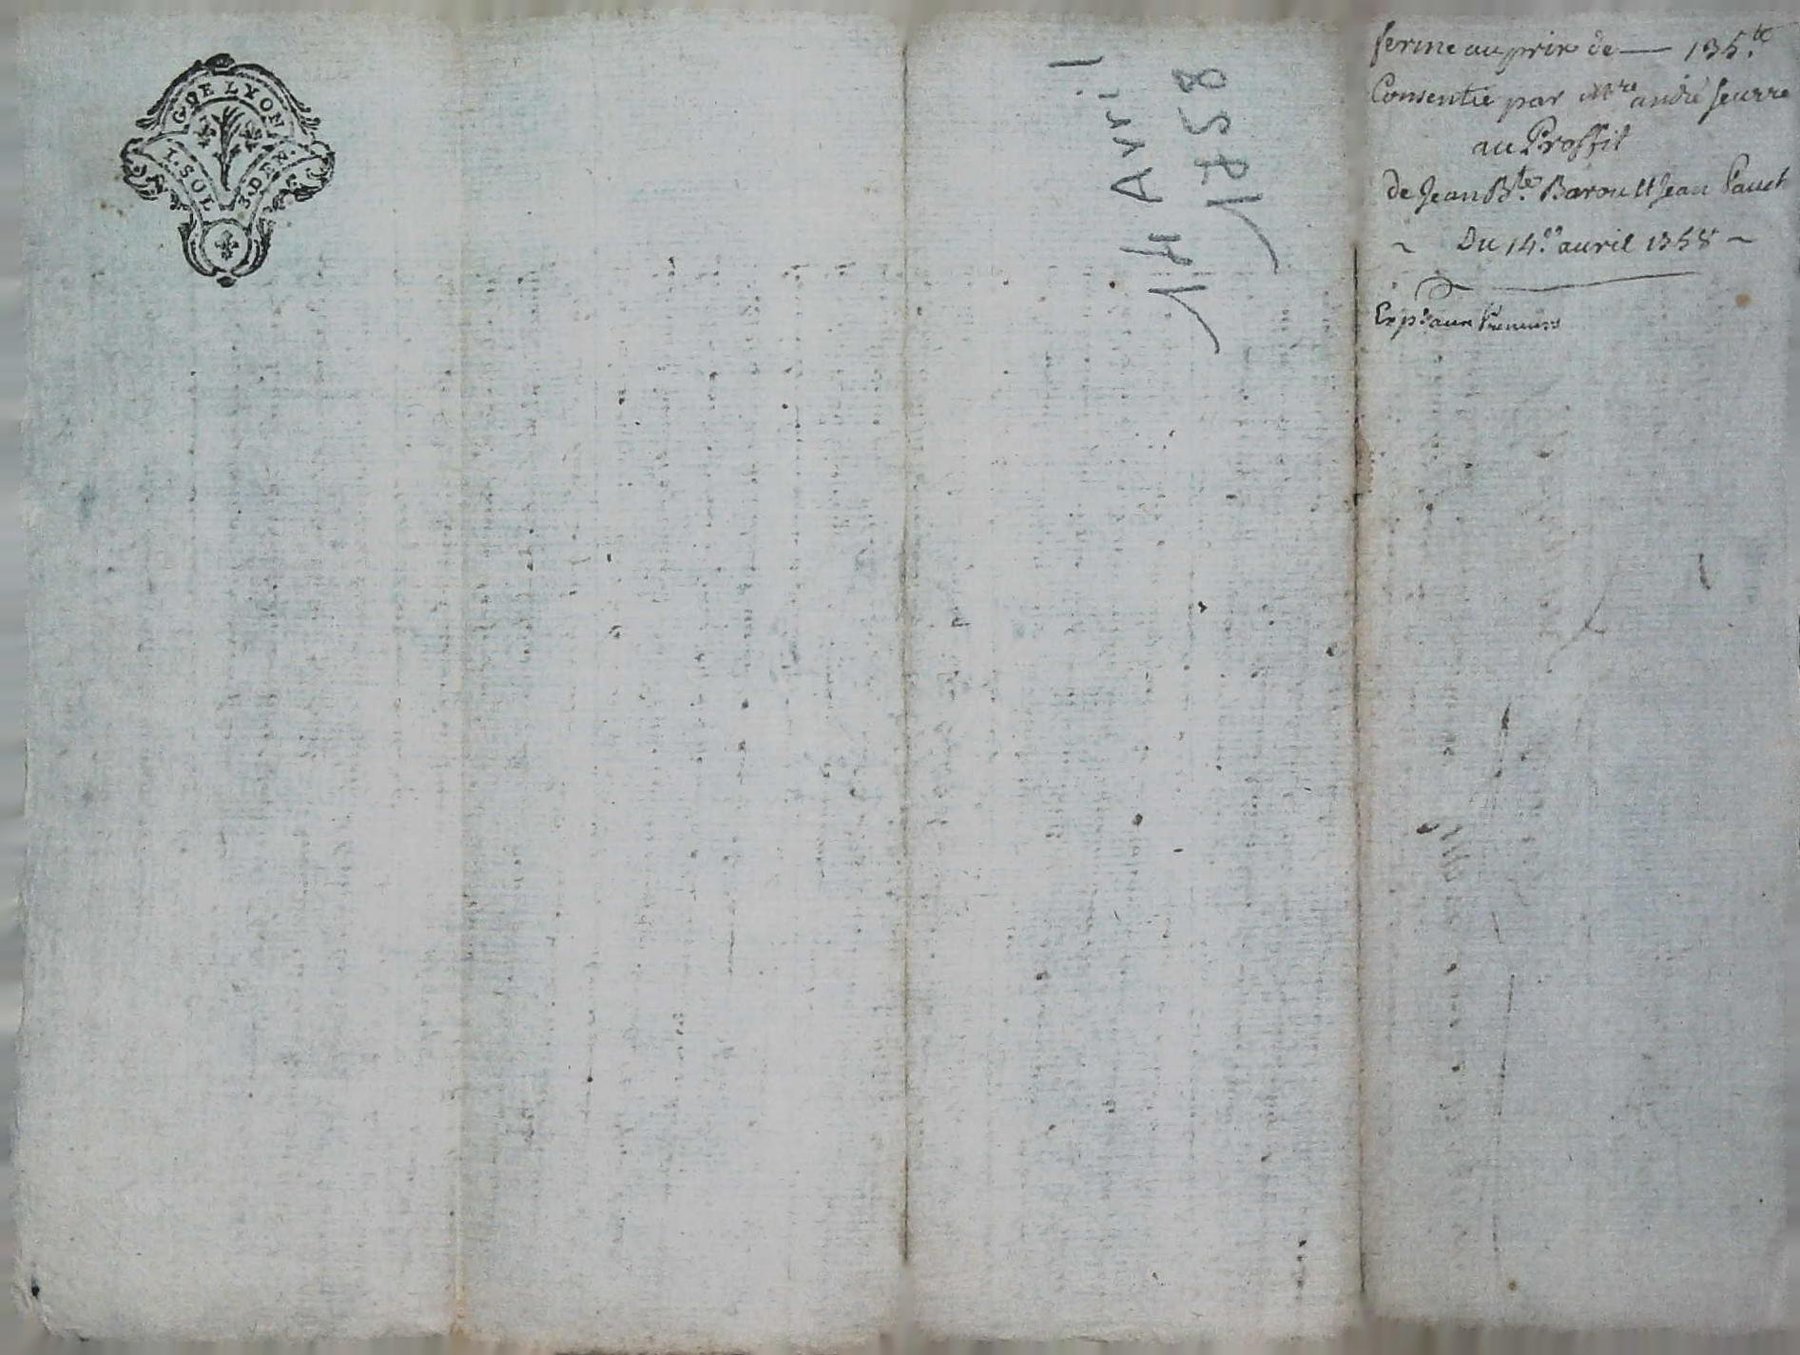 G. DE LYON
1. SOL 3. DEN.
14 Avril
1758
ferme au prix de — 135.lt
Consentie par Mre andré seurre
au Proffit
de Jean Bte. Barou et Jean Pauet
~ Du 14.e avril 1758 ~
Exp.é aux fermiers